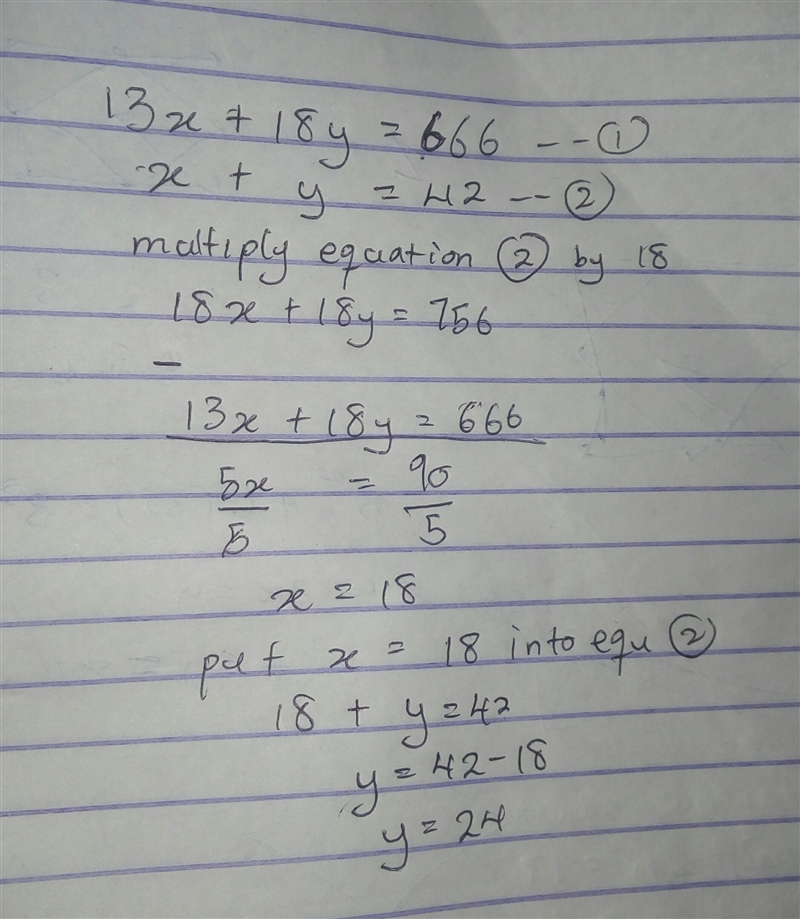 13x + 18y = 666 -- ①
x + y = 42 -- ②
multiply equation ② by 18
18x + 18y = 756
−
13x + 18y = 666
5x/5 = 90/5
x = 18
put x = 18 into equ ②
18 + y = 42
y = 42 - 18
y = 24